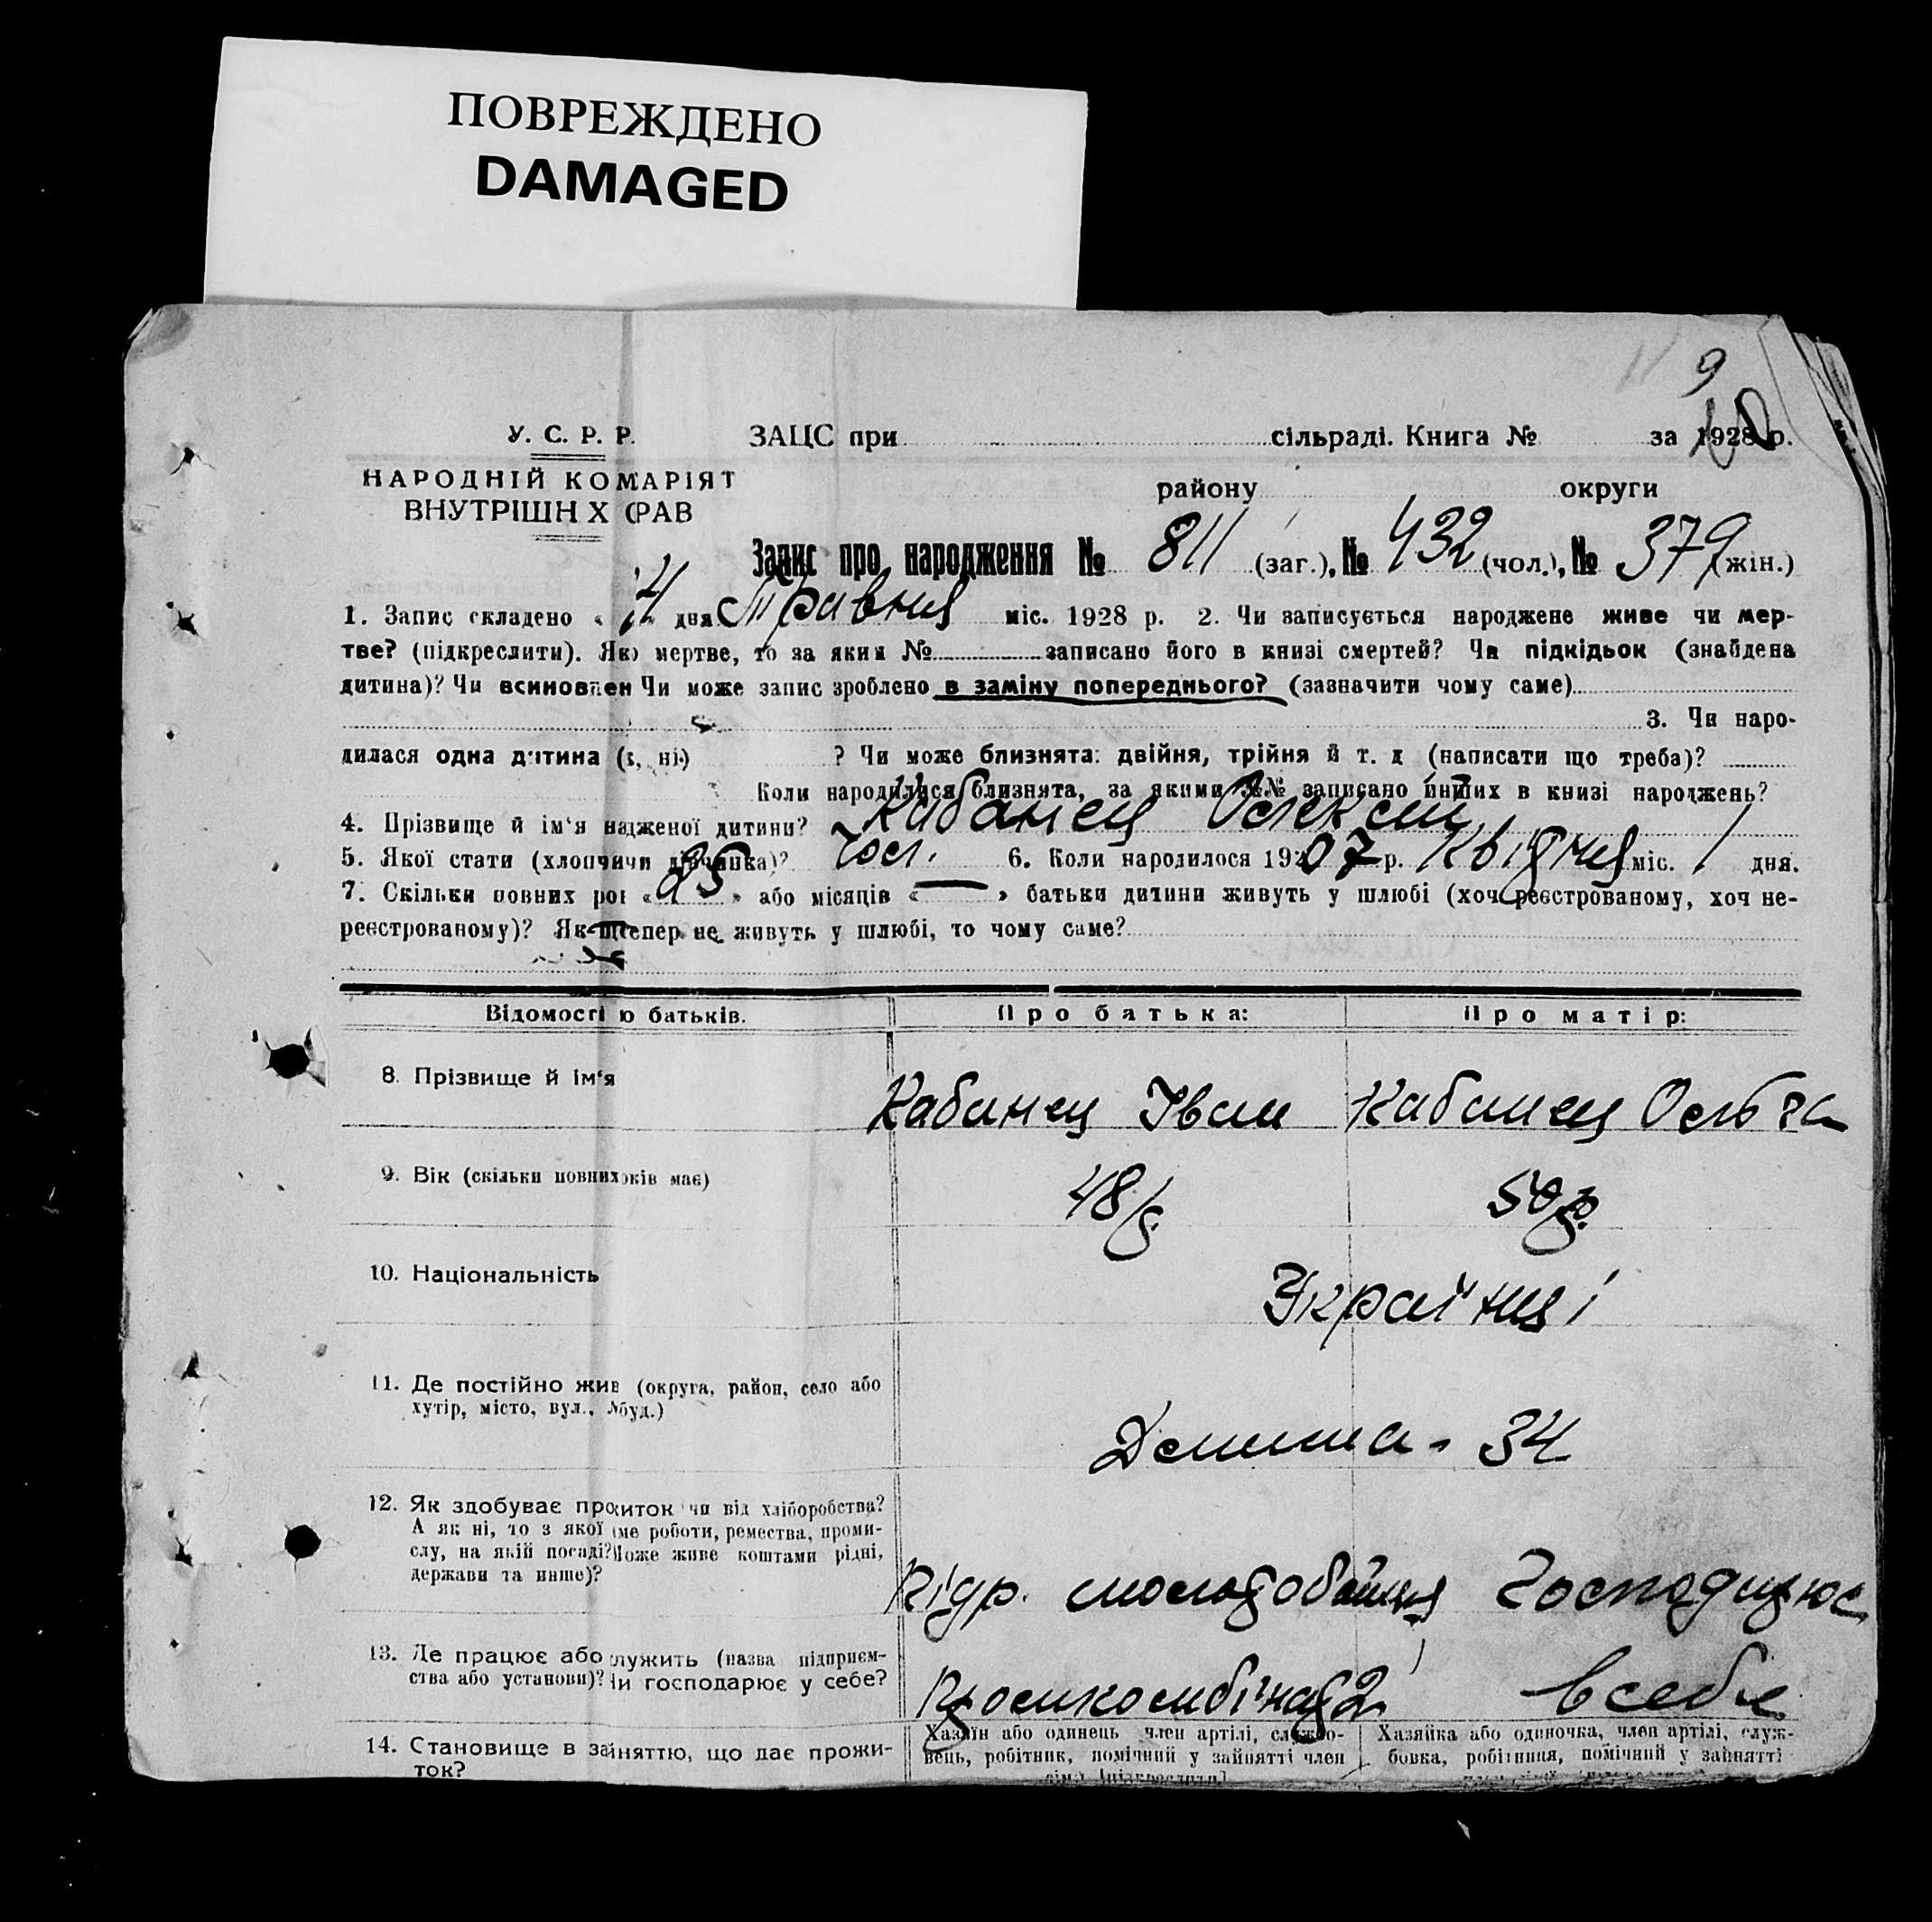 ПОВРЕЖДЕНО
DAMAGED
9
У. С. Р. Р. ЗАЦС при сільраді. Книга № за 1928 р.
НАРОДНІЙ КОМАРІЯТ
ВНУТРІШН Х СРАВ
району округи
Запис про народження № 811 (заг.), № 432 (чол.), № 379 (жін.)
1. Запис складено « » дня Травня міс. 1928 р. 2. Чи записується народжене живе чи мер-
тве? (підкреслити). Яко мертве, то за яким № записано його в книзі смертей? Чи підкідьок (знайдена
дитина)? Чи всиновлен Чи може запис зроблено в заміну попереднього? (зазначити чому саме)
3. Чи наро-
дилася одна дитина ( , ні) ? Чи може близнята: двійня, трійня й т. д (написати що треба)?
Коли народилися близнята, за якими №№ записано инших в книзі народжень?
4. Прізвище й ім'я надженої дитини? Кабанец Олексій
5. Якої стати (хлопчичи дівчинка)? Чол. 6. Коли народилося 1907 р. Квідня міс. 1 дня.
7. Скільки повних рог « 25 » або місяців « — » батьки дитини живуть у шлюбі (хоч реєстрованому, хоч не-
реєстрованому)? Як тепер не живуть у шлюбі, то чому саме?
Відомості ю батьків. Про батька: Про матір:
8. Прізвище й ім'я Кабанец Іван Кабанец
9. Вік (скільки повнихоків має) 48 р. 50 р.
10. Національність Українці
11. Де постійно жив (округа, район, село або
хутір, місто, вул., №буд.)
34
12. Як здобуває прожиток чи від хліборобства?
А як ні, то з якої аме роботи, ремества, проми-
слу, на якій посаді? Може живе коштами рідні,
держави та инше)?
13. Де працює або лужить (назва підприєм-
ства або установи)? Чи господарює у себе?
в себе
14. Становище в зайняттю, що дає прожи-
ток?
Хазяїн або одинець член артілі, службо-
вець, робітник, помічний у зайнятті член
Хазяйка або одиночка, член артілі, служ-
бовка, робітниця, помічний у зайнятті